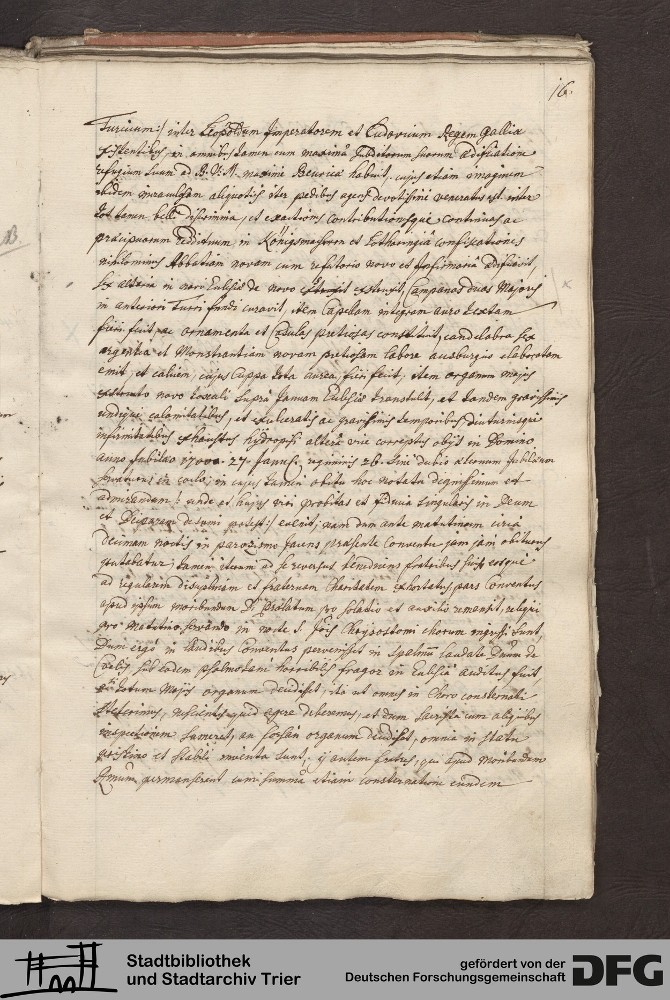 16.
Turcicum:/ inter Leopoldum Imperatorem et Ludovicum Regem Galliæ
existentibus, in omnibus tamen cum maximâ subditorum suorum ædificatione
refugium suum ad B: V: M. maximè habuit, cujus etiam imaginem
ibidem miraculosam aliquoties iter pedibus agens devotissimè veneratus est. inter
tot tamen belli discrimina, et exactiones contributionesque continuas ac
præcipuorum reddituum in Königsmacheren et Lotharingiâ confiscationes
nihilominus Abbatiam novam cum refectorio novo et Infirmaria ædificavit,
sex altaria in novâ Ecclesiâ de novo extruxit, Campanas duas Majores
in anteriori Turri fundi curavit, item Capellam integram auro textam
fieri fecit, ac ornamenta et Casulas pretiosas constituit, candelabra sex
argentea et Monstrantiam novam pretiosam labore ausburgico elaboratam
emit, et calicem, cujus Cuppa tota aurea, fieri fecit, item organum majus
extructo novo toxali supra Januam Ecclesiæ transtulit, et tandem gravissimis
undique calamitatibus, et exulceratis ac gravissimis temporibus diuturnisque
infirmitatibus exhaustus hydropisi alterâ vice correptus obijt in Domino
anno Jubilæo 1700. 27. Januarij, regiminis 26. sine dubio æternum Jubilæum
in cœlo, in cujus tamen obitu hoc notatu dignissimum et
admirandum: unde et hujus viri probitas et fiducia singularis in Deum
et Deiparam desumi potest: evenit, nam dum ante matutinam circa
decimam noctis in paroxismo jacens præsente Conventu jam jam obiturus
putabatur, tamen iterum ad se reversus benedicens fratribus suis eosque
ad regularem disciplinam et fraternam Charitatem exhortatus, pars Conventus
apud ipsum moribundum D. Prælatum pro solatio et auxilio remansit, reliqui
pro matutino servando in nocte S. Jois Chrysostomi chorum ingressi sunt,
Dum ergo in laudibus Conventus pervenisset in Psalmum laudate Dnum de
Cælis, sub eodem psalmodiam horribilis fragor in Ecclesiâ auditus fuit
totum Majus organum decidisset, ita ut omnes in Choro consternati
steterimus, nescientes quid agere deberemus, et dum sacrista cum aliquibus
inspectionem sumeret, an forsan organum decidisset, omnia in statu
pristino et stabili inventa sunt, ij autem fratres, qui apud Moribundum
permanserant, cum summa etiam consternatione eundem
Stadtbibliothek
und Stadtarchiv Trier
gefördert von der
Deutschen Forschungsgemeinschaft
DFG